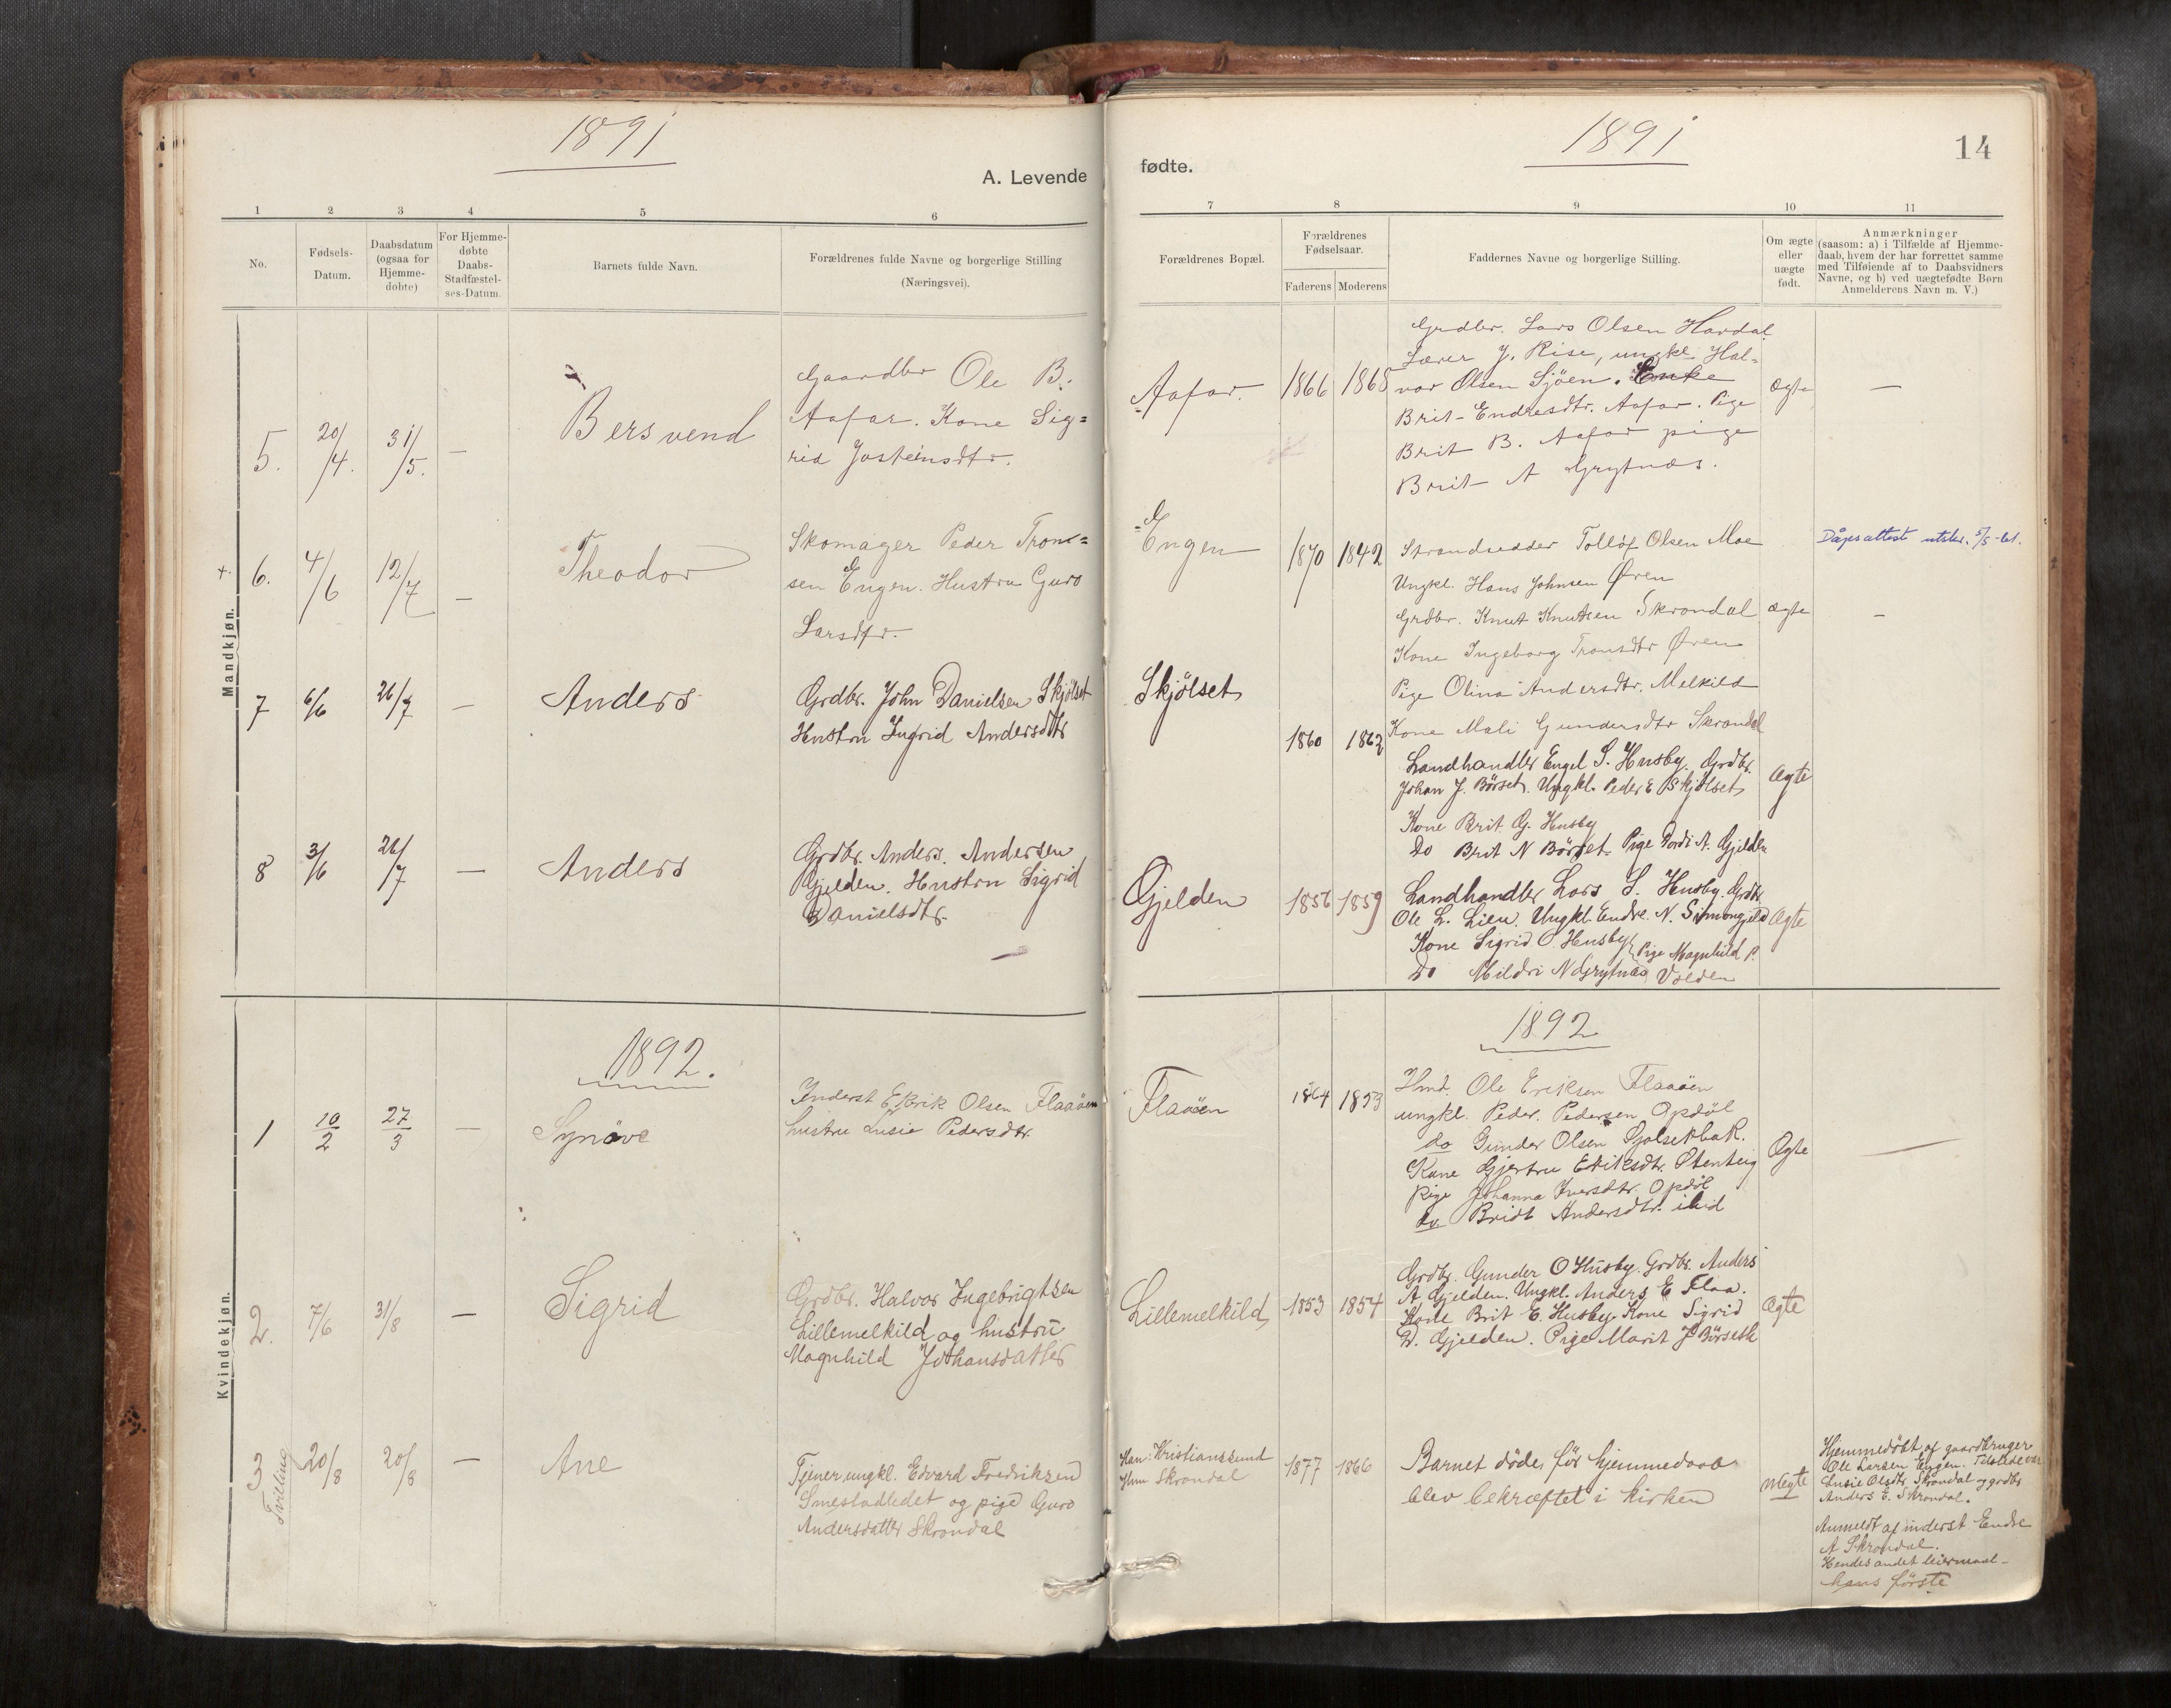 1891
A. Levende
1 2 3 4 5 6
No.
Fødsels-
Datum.
Daabsdatum
(ogsaa for
Hjemme-
døbte)
For Hjemme-
døbte
Daabs-
Stadfæstel-
ses-Datum.
Barnets fulde Navn.
Forældrenes fulde Navne og borgerlige Stilling
(Næringsvei).
Mandkjøn.
5. 20/4. 31/5. — Bersvend
Gaardbr Ole B.
Aafar. Kone Sig=
rid Josteinsdtr.
+. 6. 4/6 12/7 — Theodor
Skomager Peder Tron=
sen Engen. Hustru Guro
Larsdtr.
7 6/6 26/7 — Anders
Grdbr. John Danielsen Skjølset
Hustru Ingrid Andersdtr
8 3/6 26/7 — Anders
Grdbr. Anders. Andersen
Gjelden. Hustru Sigrid
Danielsdtr.
1892.
Kvindekjøn.
1 10/2 27/3 — Synöve
Inderst Erik Olsen Flaaöen
hustru Lusie Pedersdtr.
2. 7/6 31/8 — Sigrid
Grdbr. Halvor Ingebrigtsen
Lillemelkild og hustru
Magnhild Johansdatter
3 Tvilling 20/8 20/8 — Ane
Tjener, ungkl. Edvard Fredriksen
Smestadledet og pige Guro
Andersdatter Skrondal
1891
14
fødte.
7 8 9 10 11
Forældrenes Bopæl.
Forældrenes
Fødselsaar.
Faderens Moderens
Faddernes Navne og borgerlige Stilling.
Om ægte
eller
uægte
født.
Anmærkninger
(saasom: a) i Tilfælde af Hjemme-
daab, hvem der har forrettet samme
med Tilføiende af to Daabsvidners
Navne, og b) ved uægtefødte Børn
Anmelderens Navn m. V.)
Aafar. 1866 1868
Grdbr. Lars Olsen Hardal
Lærer J. Rise, ungkl. Hal=
vor Olsen Sjöen. Enke
Brit Endresdtr. Aafar. Pige
Brit B. Aafar pige
Brit A Grytnæs.
Ægte —
Engen 1870 1842
Strandsidder Tollöf Olsen Moe
Ungkl. Hans Johnsen Øren
Grdbr. Knut Knutsen Skrondal
Kone Ingeborg Tronsdtr Øren
Pige Olina Andersdtr. Melkild
Kone Mali Gundersdtr Skrondal
Ægte —
Dåpsattest utstev. 5/5-61.
Skjølset 1860 1862
Landhandler Engel S. Husby. Grdbr.
Johan J. Børset. Ungkl. Peder E Skjølset
Kone Brit G. Husby
Do Brit N Børset. Pige Dordi A. Gjelden
Ægte
Gjelden 1856 1859
Landhandler Lars S. Husby. Grdbr
Ole L. Lien. Ungkl. Endre N. Simongjeld
Kone Sigrid O. Husby Pige Magnhild P.
Do Mildri N Grytnæs Volden
Ægte
1892
Flaaöen 1864 1853
Hmd. Ole Eriksen Flaaöen
ungkl. Peder. Pedersen Opdöl
do Gunder Olsen Gjølsetbak.
Kone Gjertru Eriksdtr. Stenteig
Pige Johanna Iversdtr. Opdöl
do Bridt Andersdtr. ibid
Ægte —
Lillemelkild 1853 1854
Grdbr. Gunder O Husby. Grdbr. Anders
A Gjelden. Ungkl. Anders E Flaa.
Kone Brit E. Husby. Kone Sigrid
D. Gjelden. Pige Marit J Børseth
Ægte
Han: Kristianssund
Hun Skrondal
1877 1866
Barnet döde, för hjemmedaab
blev bekræftet i kirken
uægte
Hjemmedöbt af gaardbruger
Ole Larsen Engen. Tilstede var
Lusie Olsdtr. Skrondal og grdbr
Anders E. Skrondal.
Anmeldt af inderst Endre
A Skrondal.
Hendes andet leiermaal—
hans förste